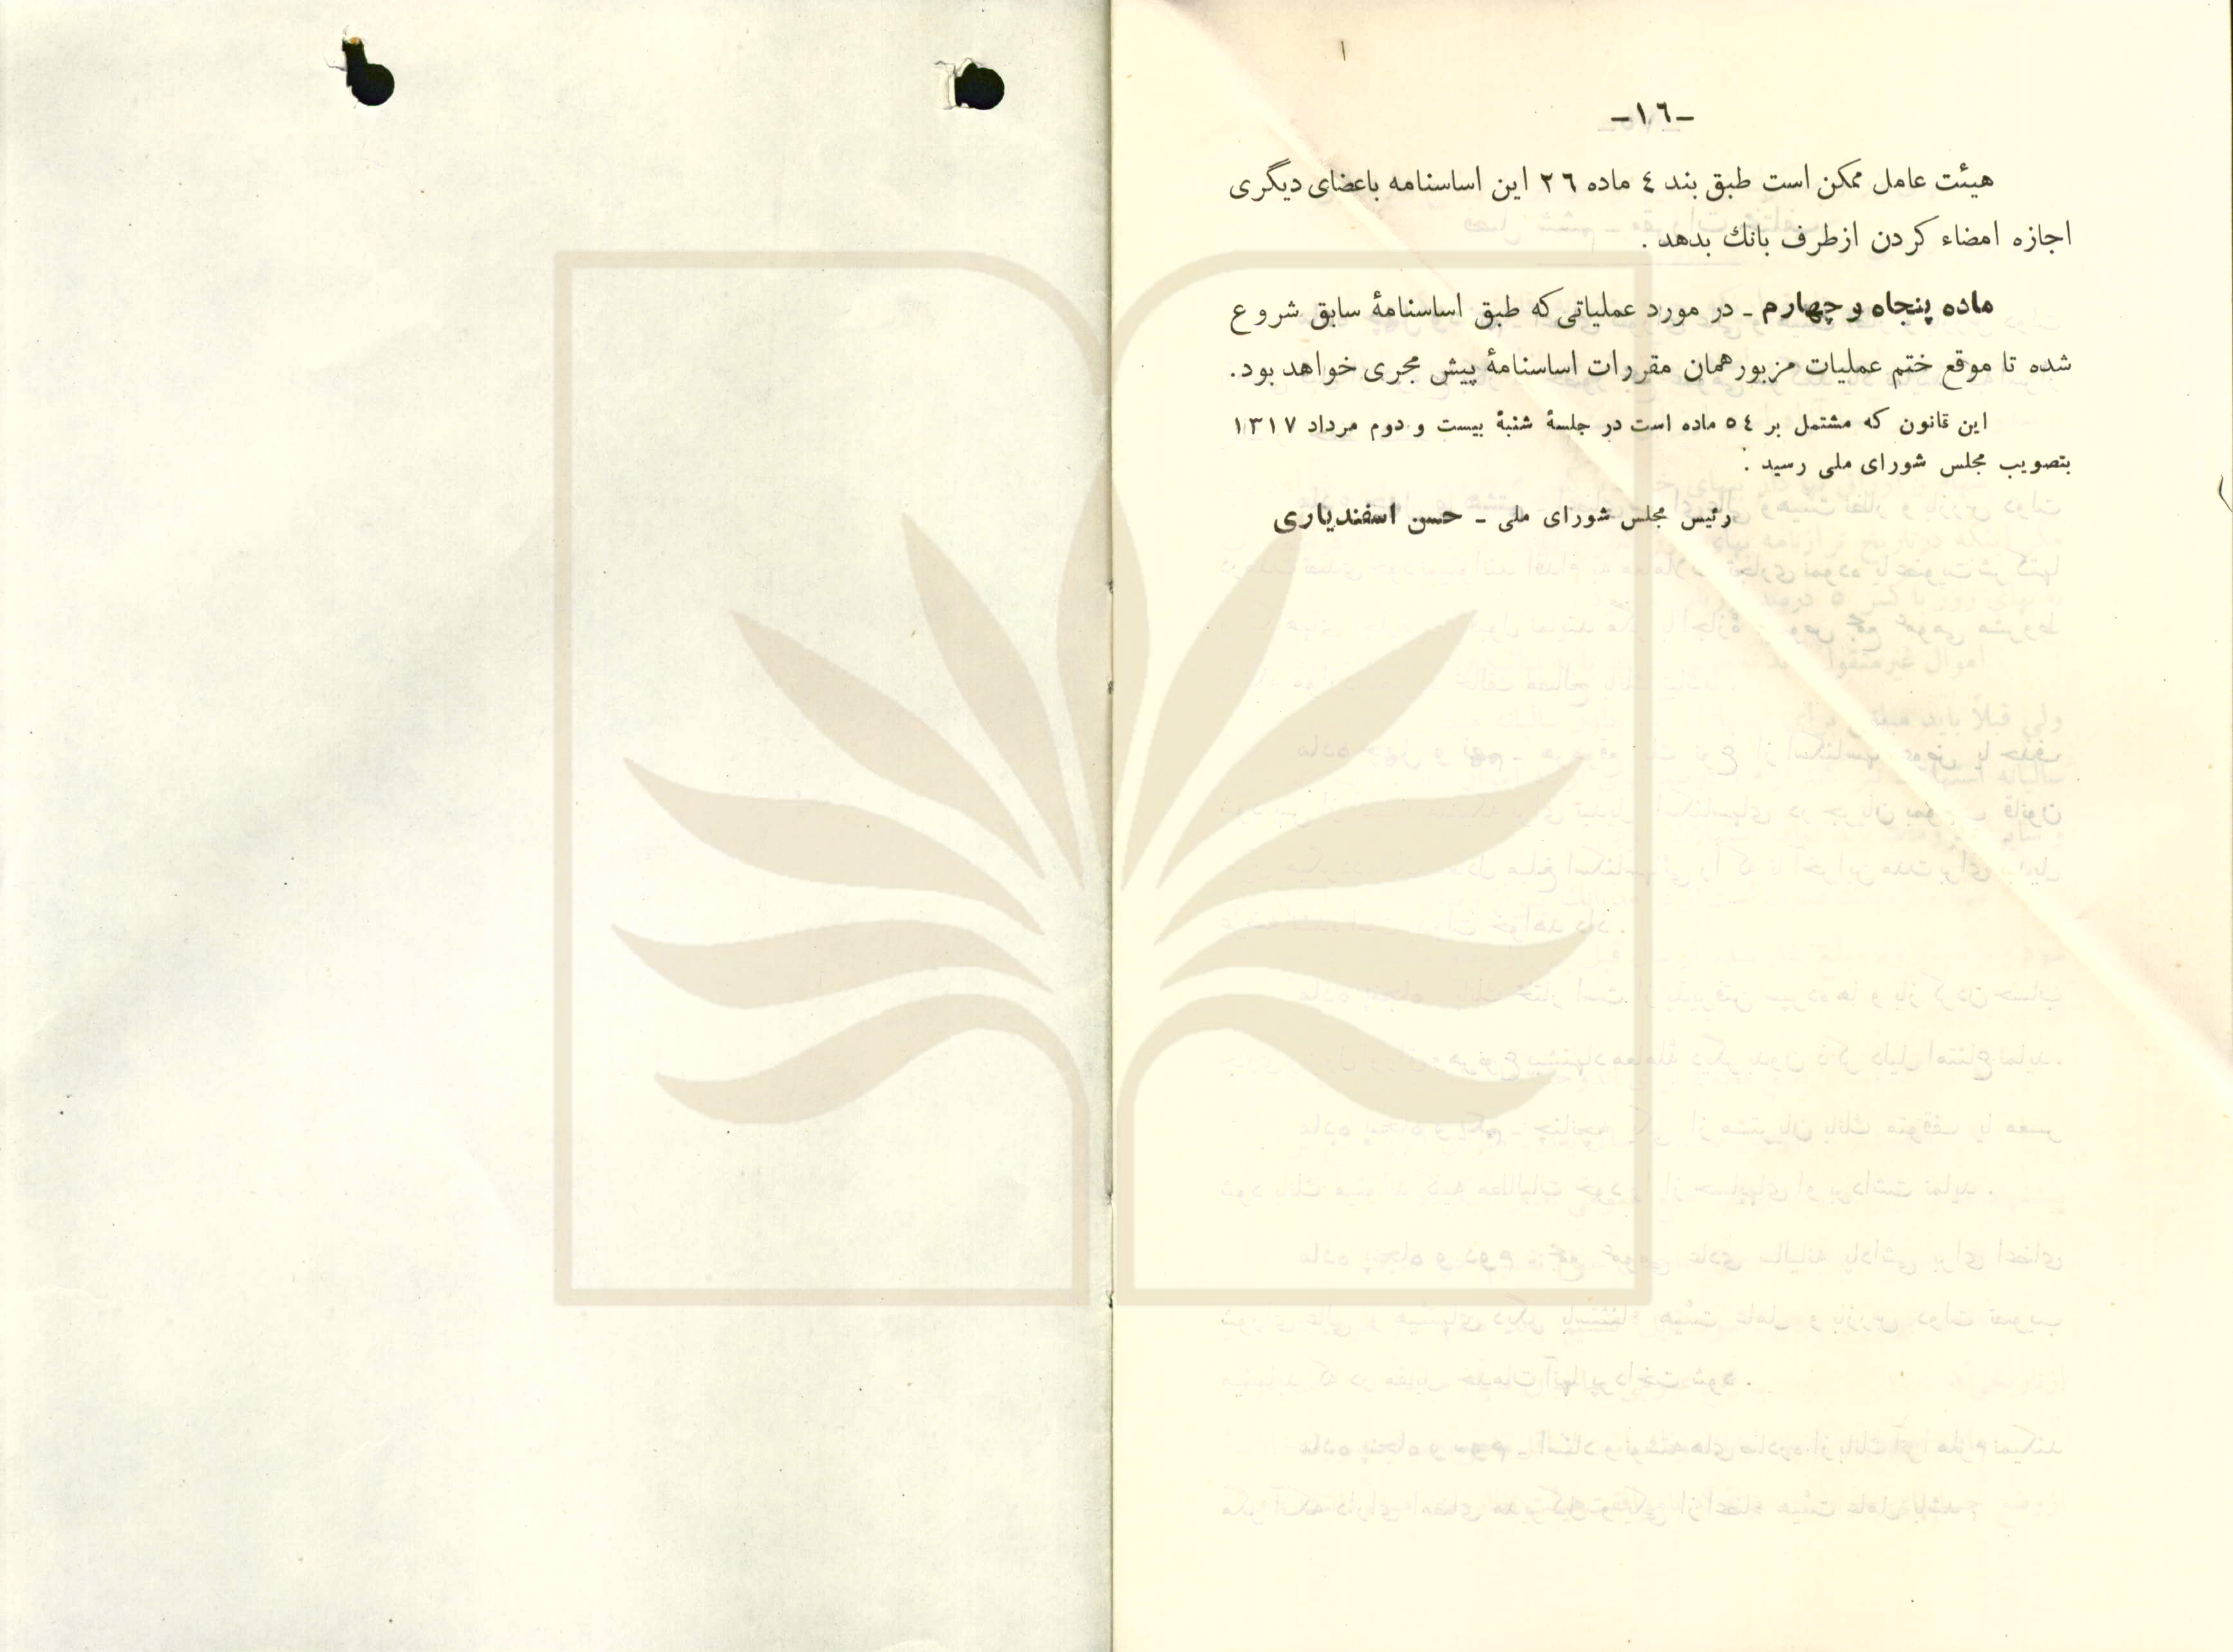 ـ١٦ـ
هیئت عامل ممکن است طبق بند ٤ ماده ٢٦ این اساسنامه باعضای دیگری
اجازه امضاء کردن ازطرف بانك بدهد .
ماده پنجاه و چهارم ـ در مورد عملیاتی که طبق اساسنامهٔ سابق شروع
شده تا موقع ختم عملیات مزبور همان مقررات اساسنامهٔ پیش مجری خواهد بود.
این قانون که مشتمل بر ٥٤ ماده است در جلسهٔ شنبهٔ بیست و دوم مرداد ١٣١٧
بتصویب مجلس شورای ملی رسید .
رئیس مجلس شورای ملی ـ حسن اسفندیاری